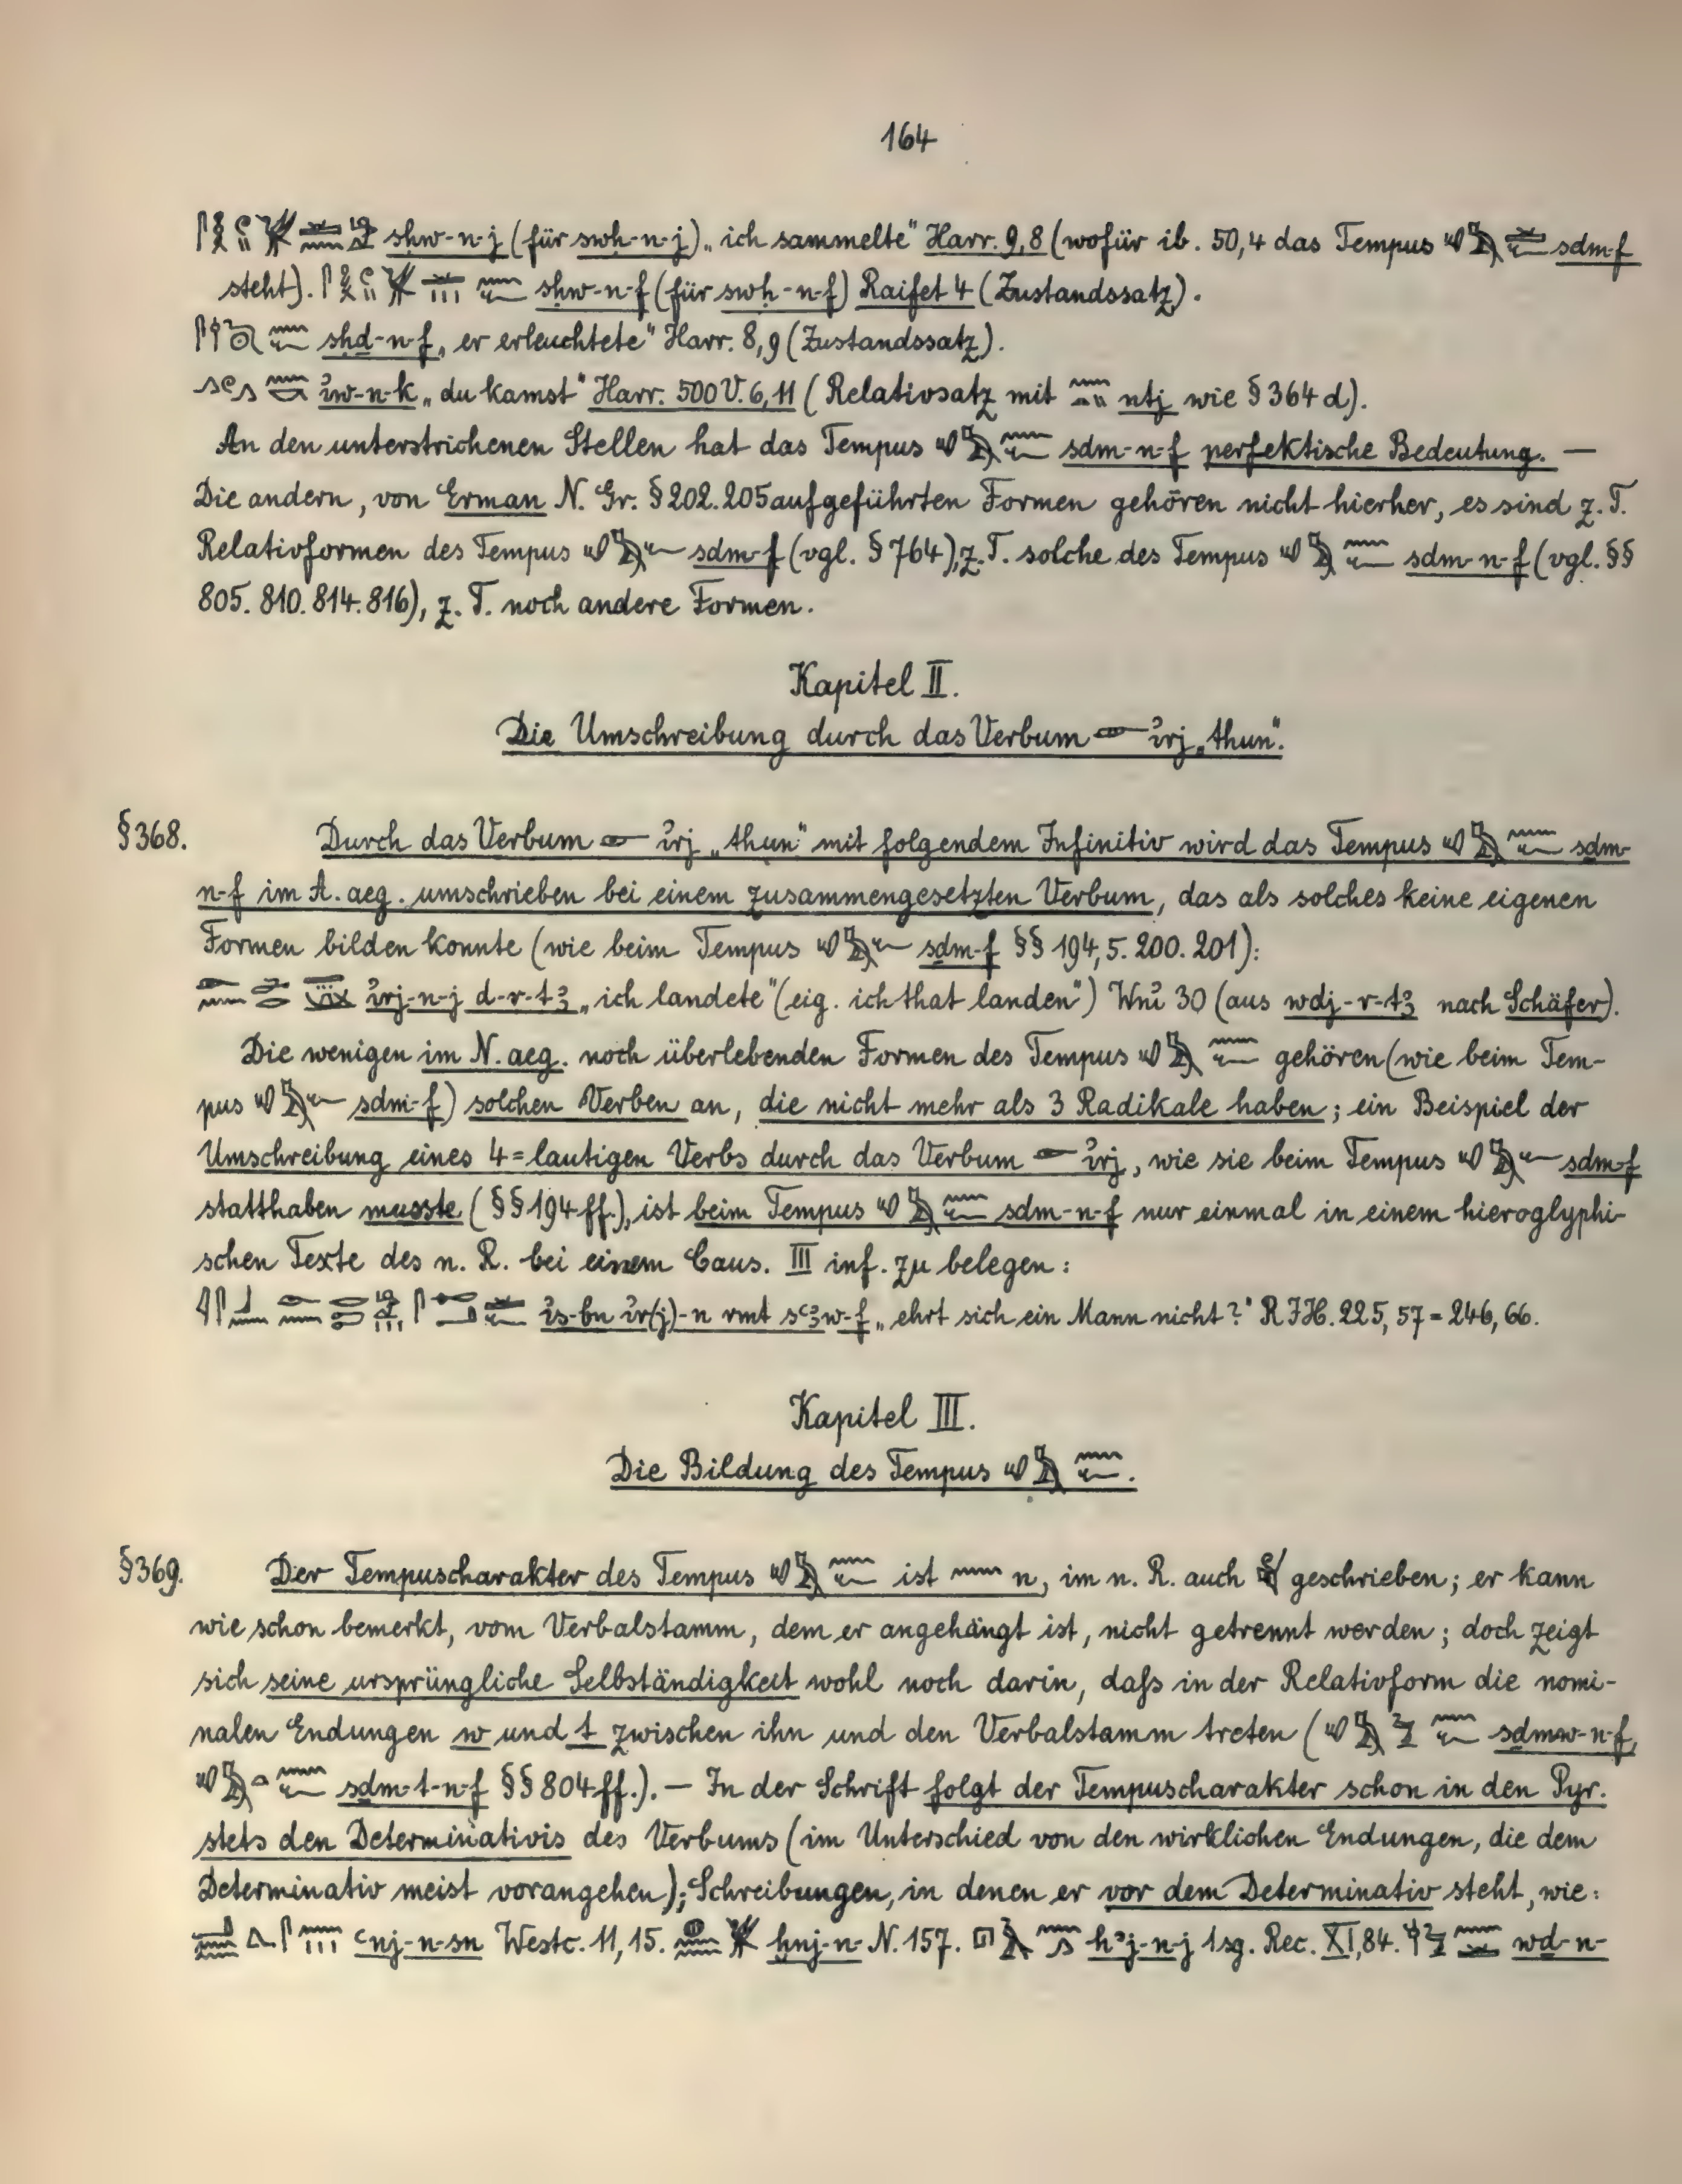 164
sḥw-n-j (für swḥ-n-j) „ich sammelte“ Harr. 9,8 (wofür ib. 50,4 das Tempus sḏm-f
steht). sḥw-n-f (für swḥ-n-f) Raifet 4 (Zustandssatz).
sḥḏ-n-f „er erleuchtete“ Harr. 8,9 (Zustandssatz).
ỉw-n-k „du kamst“ Harr. 500 V. 6,11 (Relativsatz mit ntj wie § 364 d).
An den unterstrichenen Stellen hat das Tempus sḏm-n-f perfektische Bedeutung. —
Die andern, von Erman N. Gr. § 202. 205 aufgeführten Formen gehören nicht hierher, es sind z. T.
Relativformen des Tempus sḏm-f (vgl. § 764), z. T. solche des Tempus sḏm-n-f (vgl. §§
805. 810. 814. 816), z. T. noch andere Formen.
Kapitel II.
Die Umschreibung durch das Verbum ỉrj „thun“.
§ 368. Durch das Verbum ỉrj „thun“ mit folgendem Infinitiv wird das Tempus sḏm-
n-f im A. aeg. umschrieben bei einem zusammengesetzten Verbum, das als solches keine eigenen
Formen bilden konnte (wie beim Tempus sḏm-f §§ 194, 5. 200. 201):
ỉrj-n-j d-r-tꜣ „ich landete“ (eig. ich that landen“) Wnỉ 30 (aus wdj-r-tꜣ nach Schäfer).
Die wenigen im N. aeg. noch überlebenden Formen des Tempus gehören (wie beim Tem-
pus sḏm-f) solchen Verben an, die nicht mehr als 3 Radikale haben; ein Beispiel der
Umschreibung eines 4=lautigen Verbs durch das Verbum ỉrj, wie sie beim Tempus sḏm-f
statthaben musste (§§ 194 ff.), ist beim Tempus sḏm-n-f nur einmal in einem hieroglyphi-
schen Texte des n. R. bei einem Caus. III inf. zu belegen:
ỉs-bn ỉr(j)-n rmt sꜥꜣw-f „ehrt sich ein Mann nicht?“ R IH. 225, 57 = 246, 66.
Kapitel III.
Die Bildung des Tempus .
§ 369. Der Tempuscharakter des Tempus ist n, im n. R. auch geschrieben; er kann
wie schon bemerkt, vom Verbalstamm, dem er angehängt ist, nicht getrennt werden; doch zeigt
sich seine ursprüngliche Selbständigkeit wohl noch darin, daſs in der Relativform die nomi-
nalen Endungen w und t zwischen ihn und den Verbalstamm treten ( sḏmw-n-f,
sḏm-t-n-f §§ 804 ff.). — In der Schrift folgt der Tempuscharakter schon in den Pyr.
stets den Determinativis des Verbums (im Unterschied von den wirklichen Endungen, die dem
Determinativ meist vorangehen); Schreibungen, in denen er vor dem Determinativ steht, wie:
ꜥnj-n-sn Westc. 11, 15. ḫnj-n- N. 157. hꜣj-n-j 1 sg. Rec. XI, 84. wḏ-n-